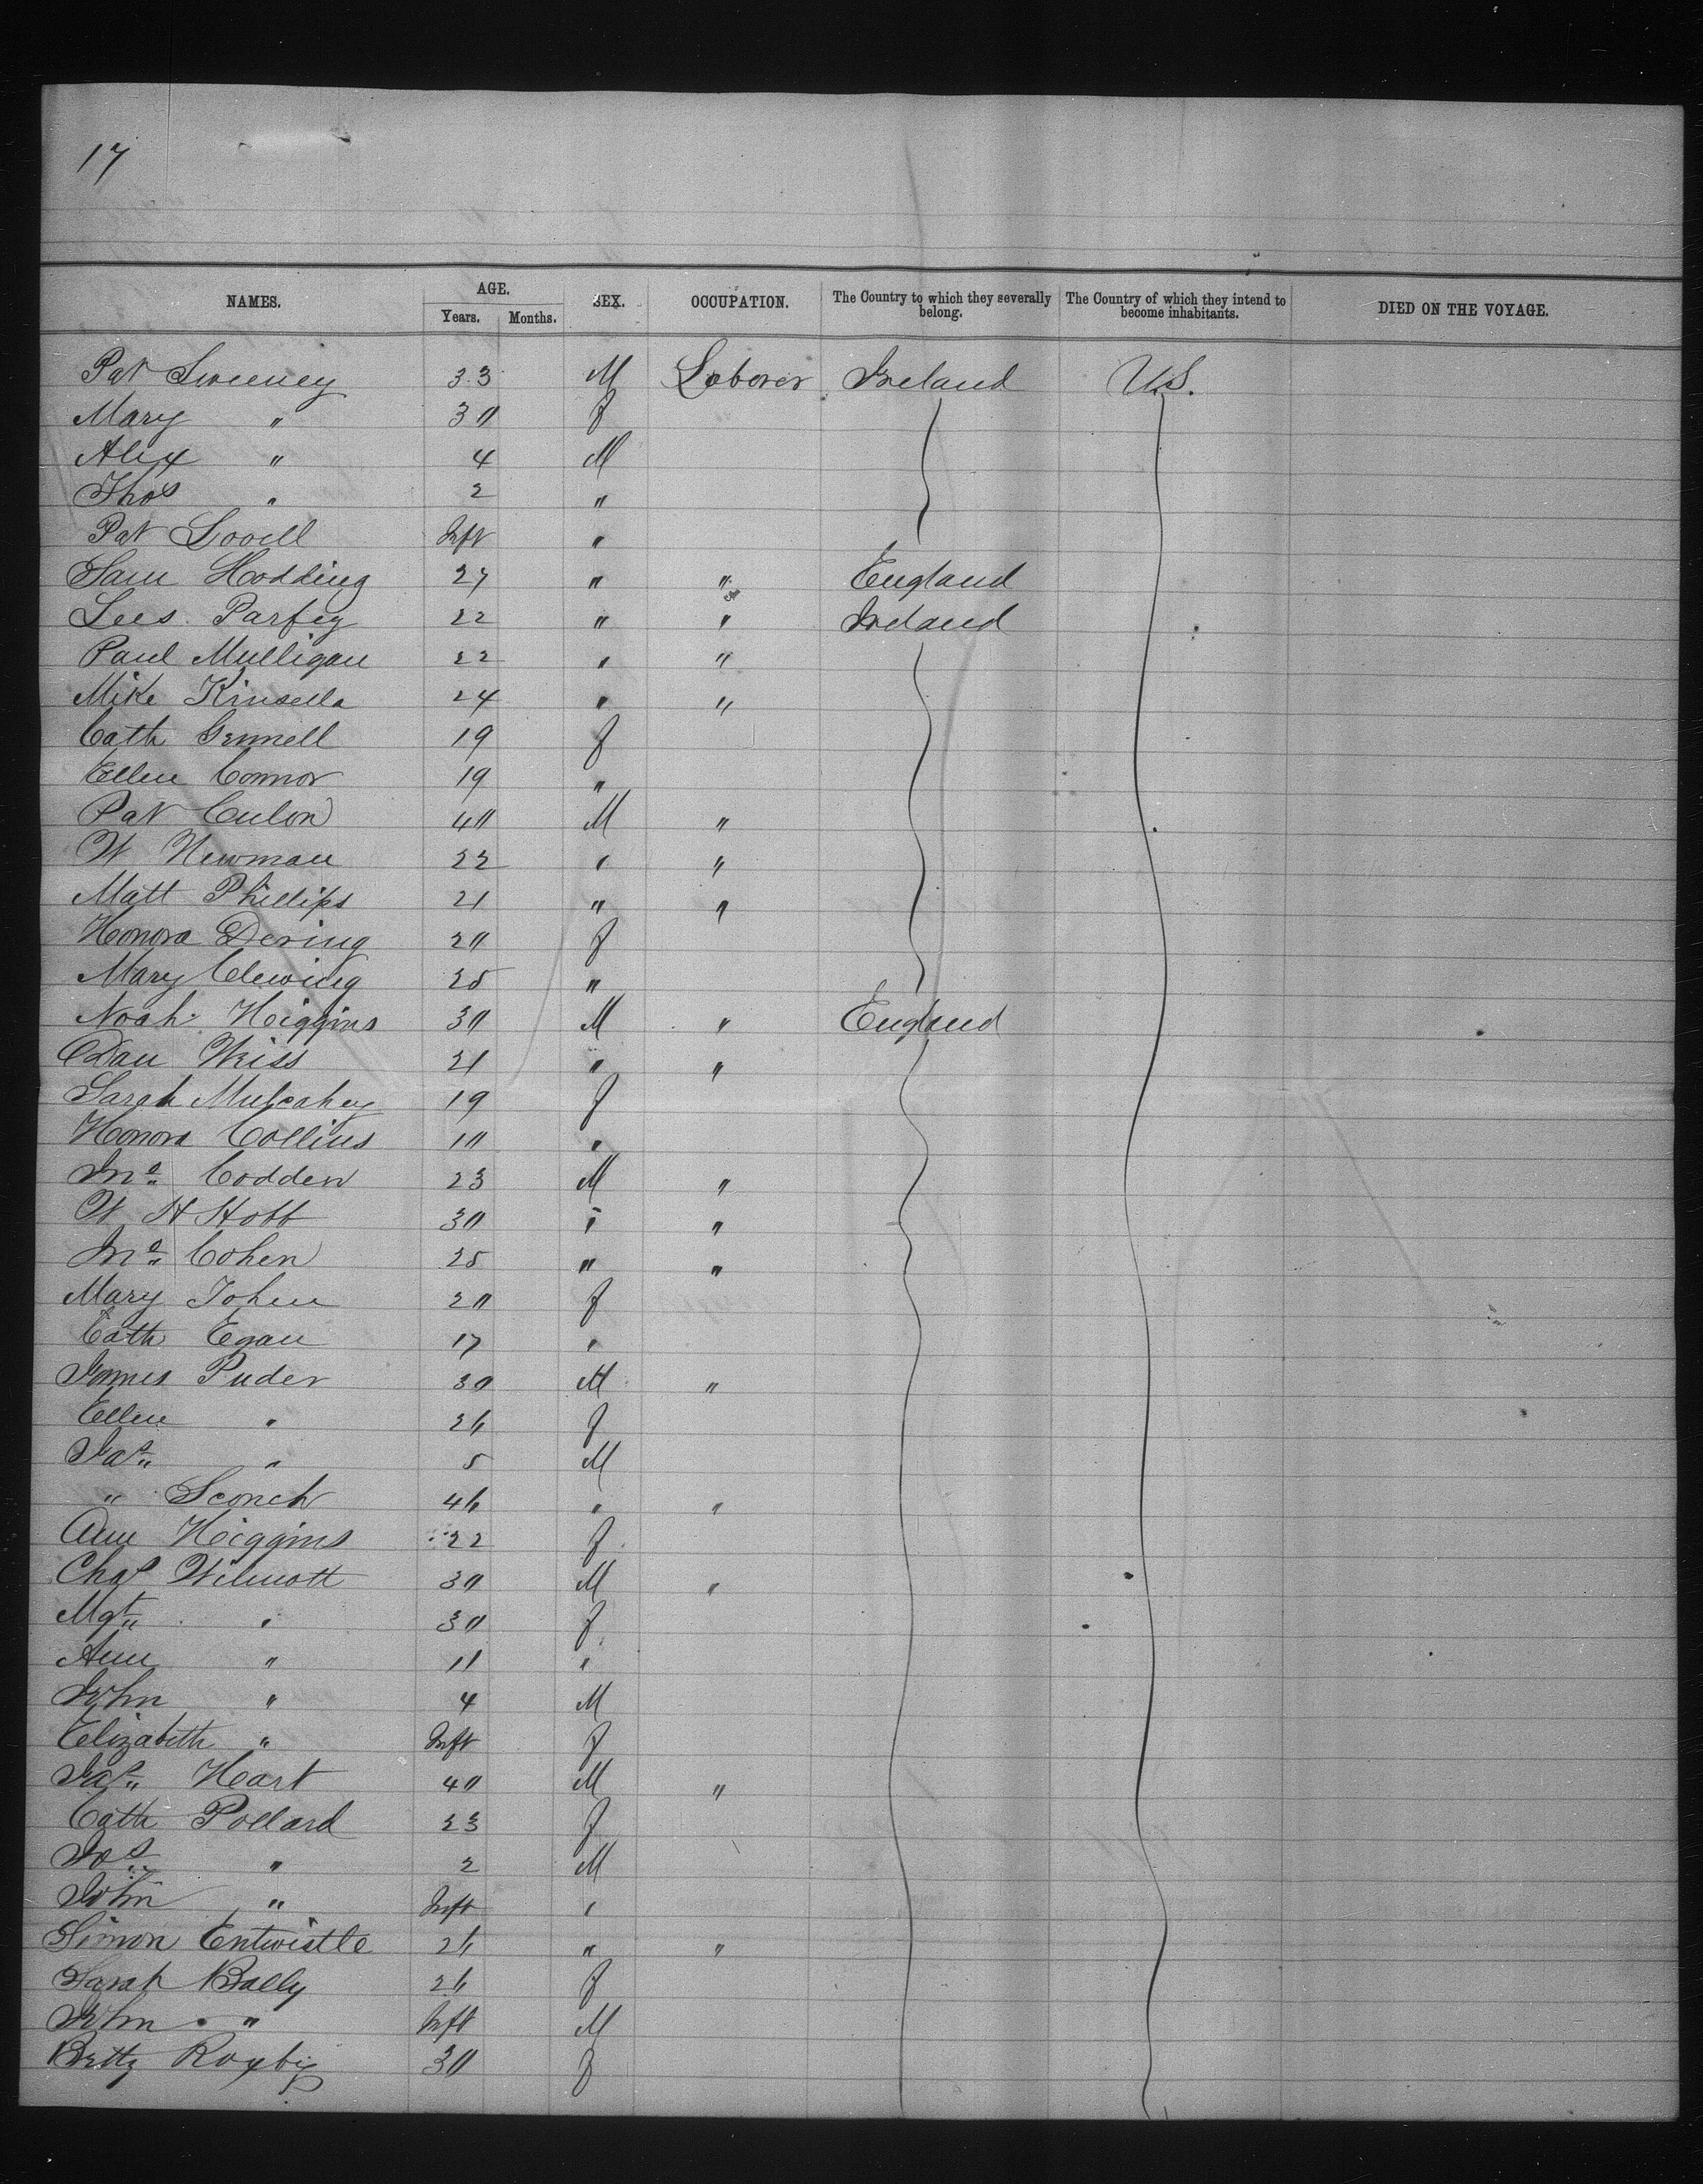 17
NAMES. AGE. Years. Months. SEX. OCCUPATION. The Country to which they severally belong. The Country of which they intend to become inhabitants. DIED ON THE VOYAGE.
Pat Sweeney 33 M Laborer Ireland U.S.
Mary " 30 f
Alex " 4 M
Thos " 2 "
Pat Lovell Inft "
Sam Hodding 27 " " England
Lees Parfey 22 " " Ireland
Paul Mulligan 22 " "
Mike Kinsella 24 " "
Cath Grinnell 19 f
Ellen Connor 19 "
Pat Culon 40 M "
W Newman 22 " "
Matt Phillips 21 " "
Honora Dering 20 f
Mary Clewing 25 "
Noah Higgins 30 M " England
Dan Weiss 21 " "
Sarah Mulcahey 19 f
Honora Collins 10 "
Jno Codden 23 M "
W H Hobb 30 " "
Jno Cohen 25 " "
Mary Tohen 20 f
Cath Egan 17 "
James Puder 30 M "
Ellen " 26 f
Jas " 5 M
" Sconch 46 " "
Ann Higgins 22 f
Chas Wilmott 30 M "
Mgt " 30 f
Ann " 11 "
John " 4 M
Elizabeth " Inft f
Jas Hart 40 M "
Cath Pollard 23 f
Jos " 2 M
John " Inft "
Simon Entwistle 26 " "
Sarah Bally 26 f
John " Inft M
Betty Roxby 30 f